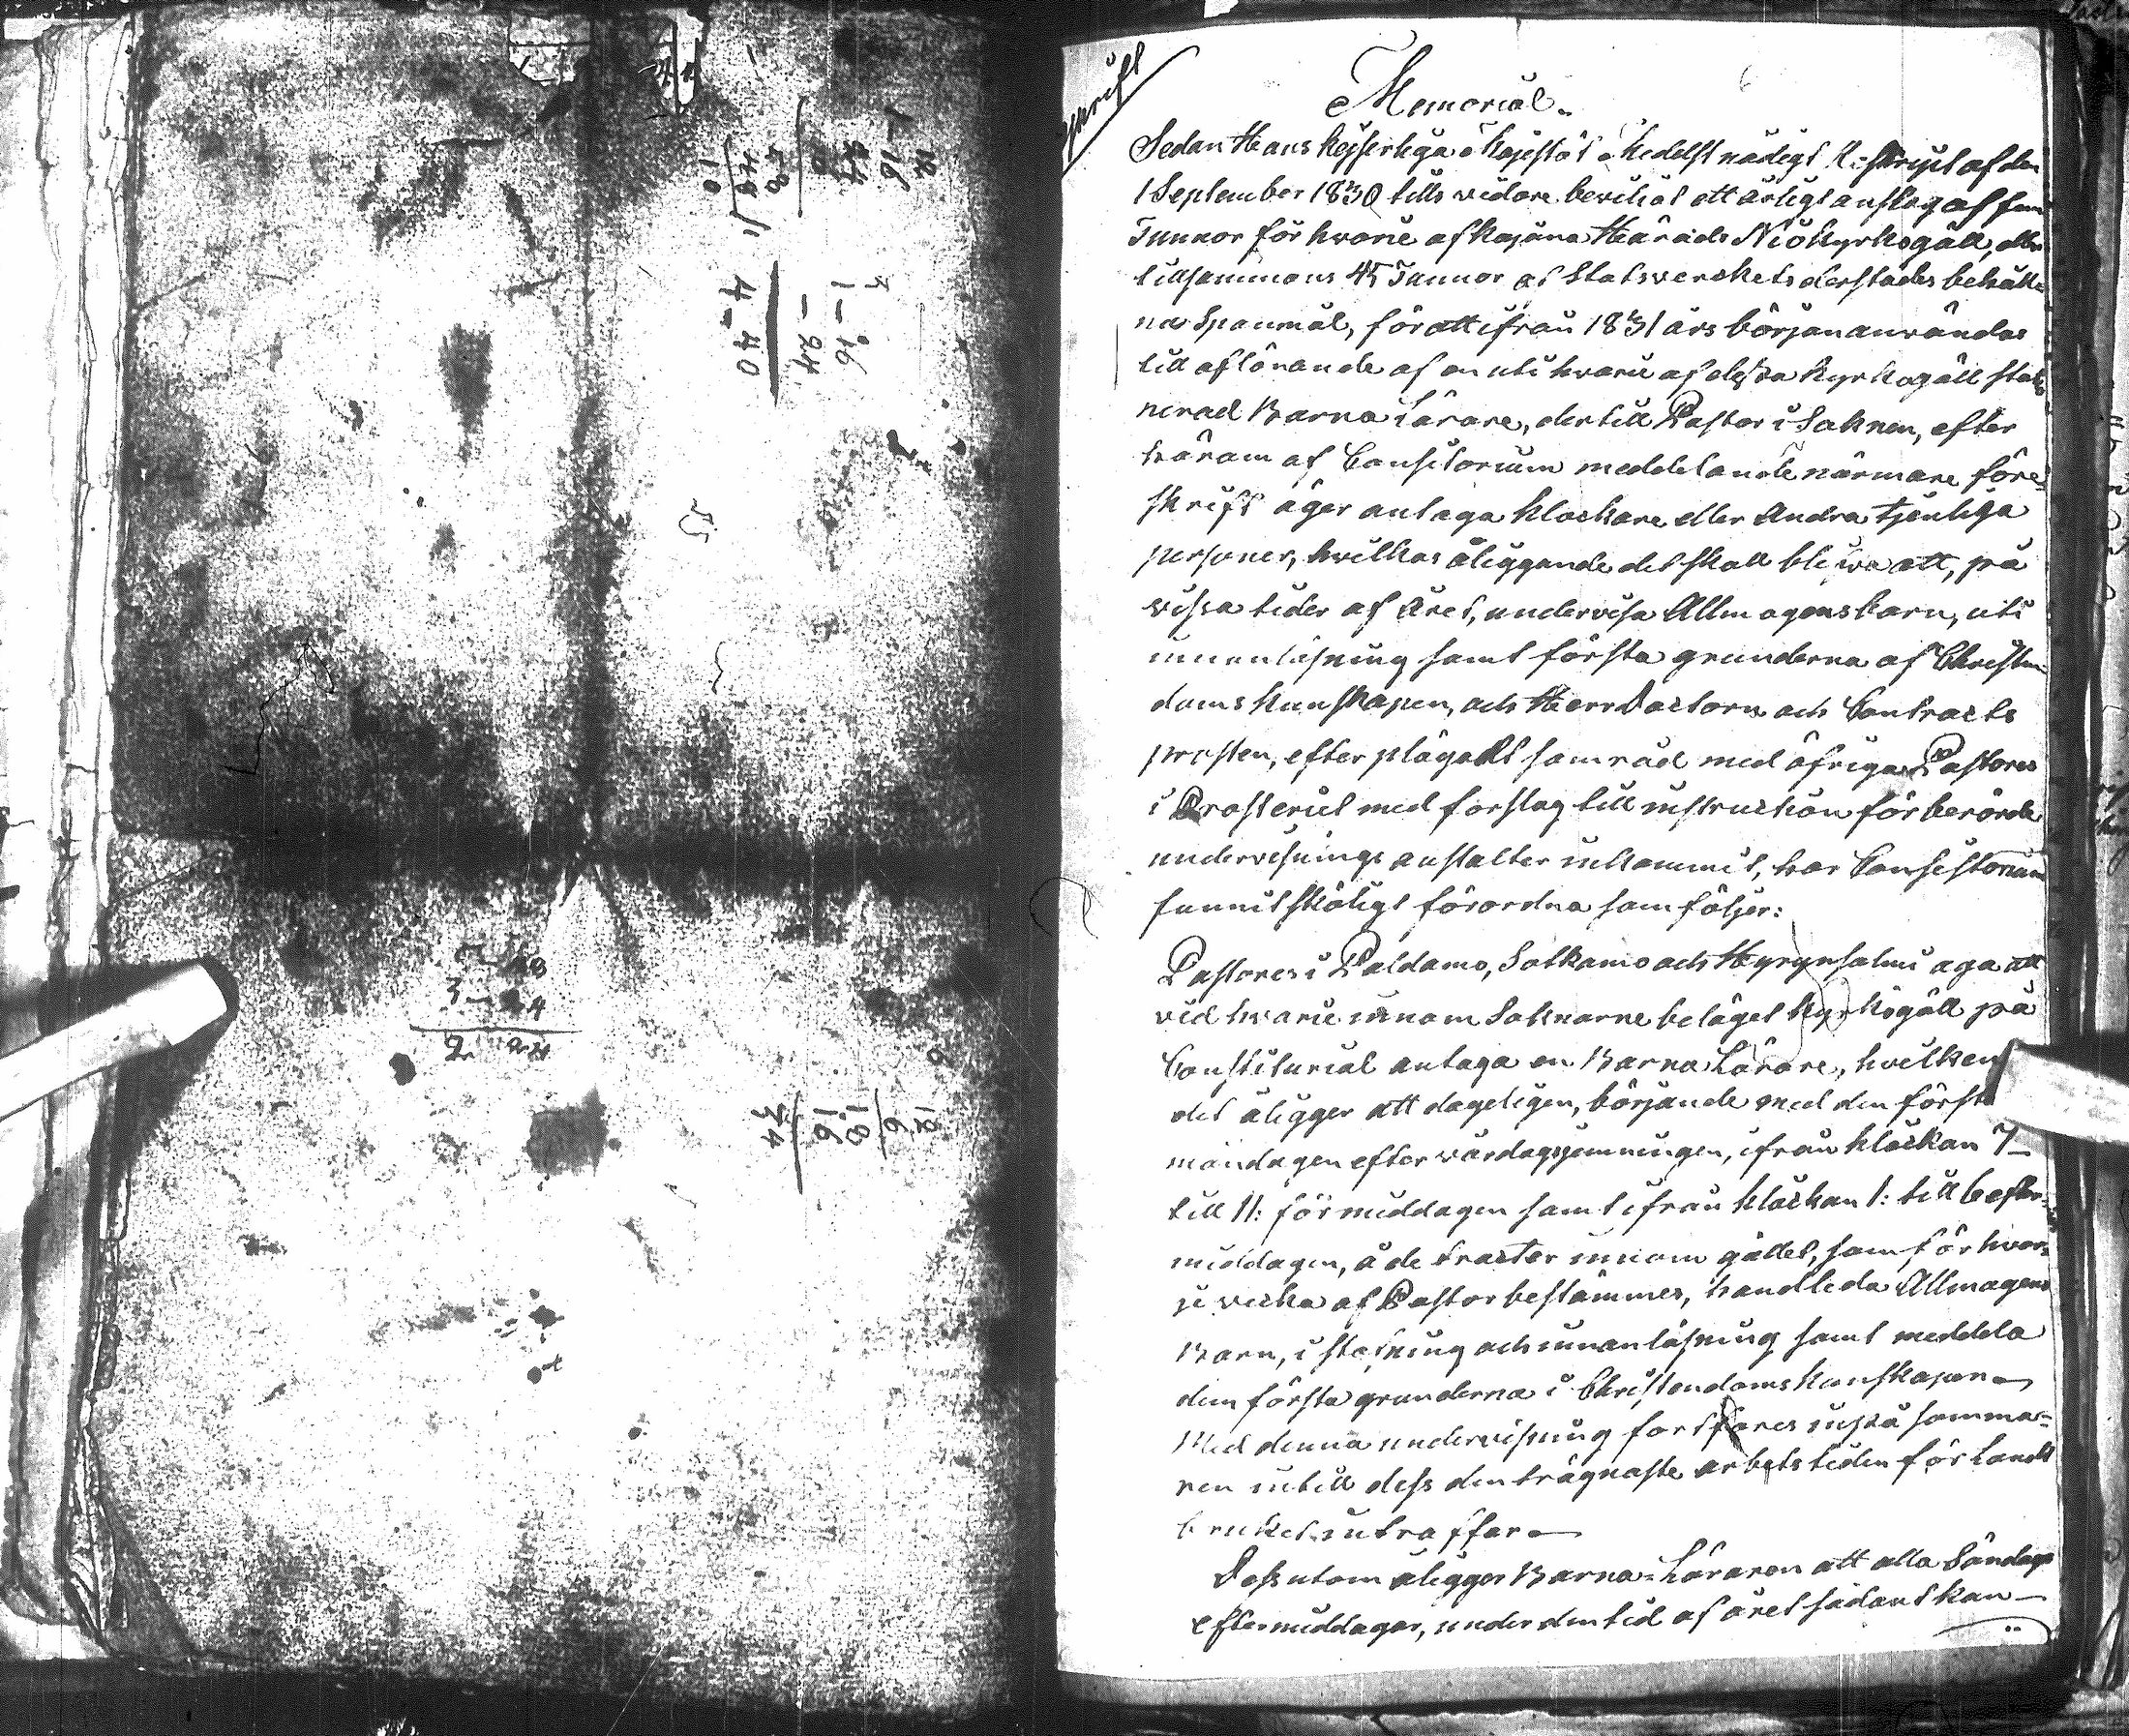 Memorial.
Sedan Hans Kejserliga Majestät medelst nådigt Reskript af den
1 September 1830 tills vidare beviljat ett årligt anslag af fem
Tunnor för hvarje af Kajana Härads Nio Kyrkogäll, eller
tillsammans 45 Tunnor af Statsverckets derstädes behåll=
na Spanmål, för att ifrån 1831 års början användas
till aflönande af en uti hvarje af dessa Kyrkogäll statio
nerad Barna Lärare, dertill Pastor i Soknen, efter
härom af Consitorium meddelande närmare före=
skrift äger antaga Klockare eller Andra tjenliga
personer, hvilkas åliggande det skall blifva att, på
vissa tider af Året, undervisa Allmogens barn, uti
innanläsning samt första grunderna af Christen=
doms kunskapen, och Herr Doctorn och Contracts
prosten, efter plägadt samråd med öfriga Pastores
i Prosteriet med forslag till instruction för berörde
undervisnings anstalter inkommit, har Consistorium
funnit skäligt förordna som följer:
Pastores i Paldamo, Sotkamo och Hyrynsalmi äga att
vid hvarje innom Soknarne beläget Kyrkogäll på
Constiturial antaga en Barna Lärare, hvilken
det åligger att dageligen, börjande med den första
måndagen efter vårdagsjemningen, ifrån klåckan 7
till 11: förmiddagen samt ifrån klåckan 1: till 6 efter=
middagen, å de tracter innom gället, som för hvar=
je vecka af Pastor bestämmes, handleda Allmogens
Barn, i stafning och innanläsning samt meddela
dem första grunderna i Christendoms kunskapen
Med denna undervisning fortfares inpå somma=
ren intill dess den trägnaste arbetstiden för Landt
bruket intraffar
Dessutom åligger Barna=Läraren att alla Söndags
eftermiddagar, under den tid af året sådant kan
3 24
2 24
1 16
24
4 40
18
16
34